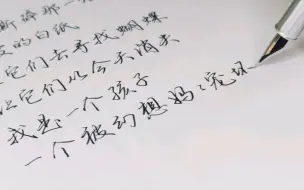 碎那一
的白纸
它们去寻找蝴蝶
让它们从今天消失
我是一个孩子
一个被幻想妈々宠坏